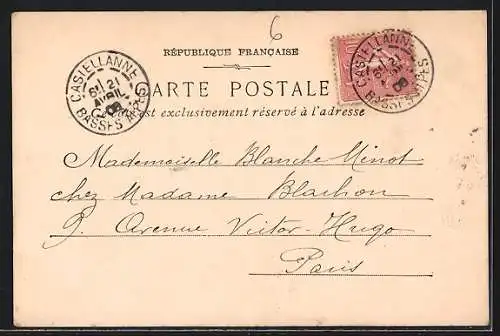 6
RÉPUBLIQUE FRANÇAISE
CARTE POSTALE
est exclusivement réservé à l'adresse
CASTELLANNE
21
AVRIL
08
BASSES ALPES
CASTELLANNE
21
08
BASSES ALPES
Mademoiselle Blanche Minot
chez Madame Blachon
9. Avenue Victor-Hugo
Paris